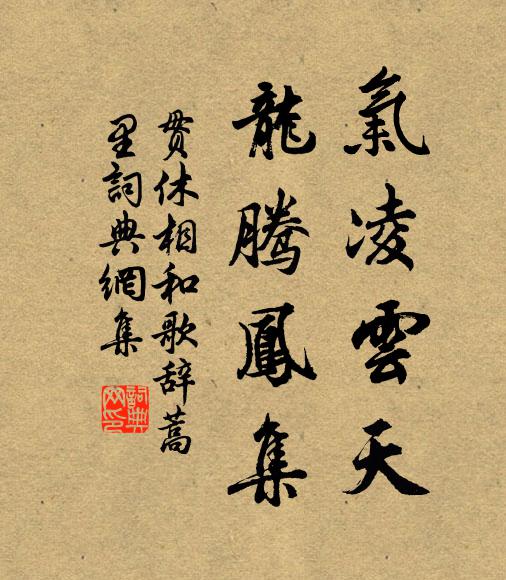 氣凌雲天
龍騰鳳集
貫休相和歌辞蒿
里詞典網集
詞典
网印